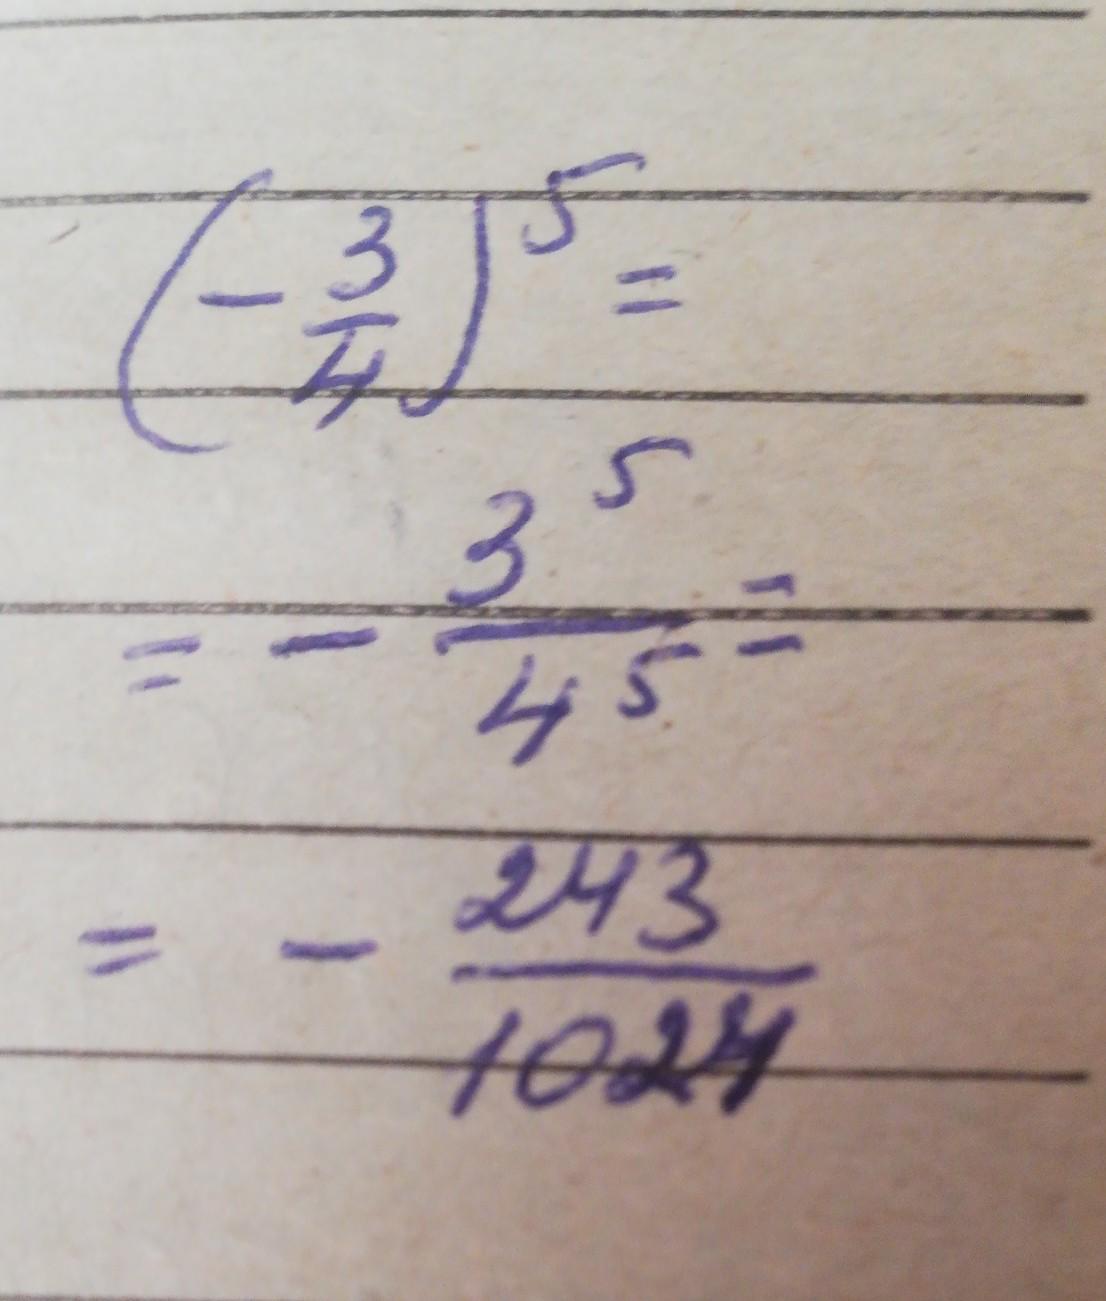 (-3/4)^5 =
= - 3^5/4^5 =
= - 243/1024